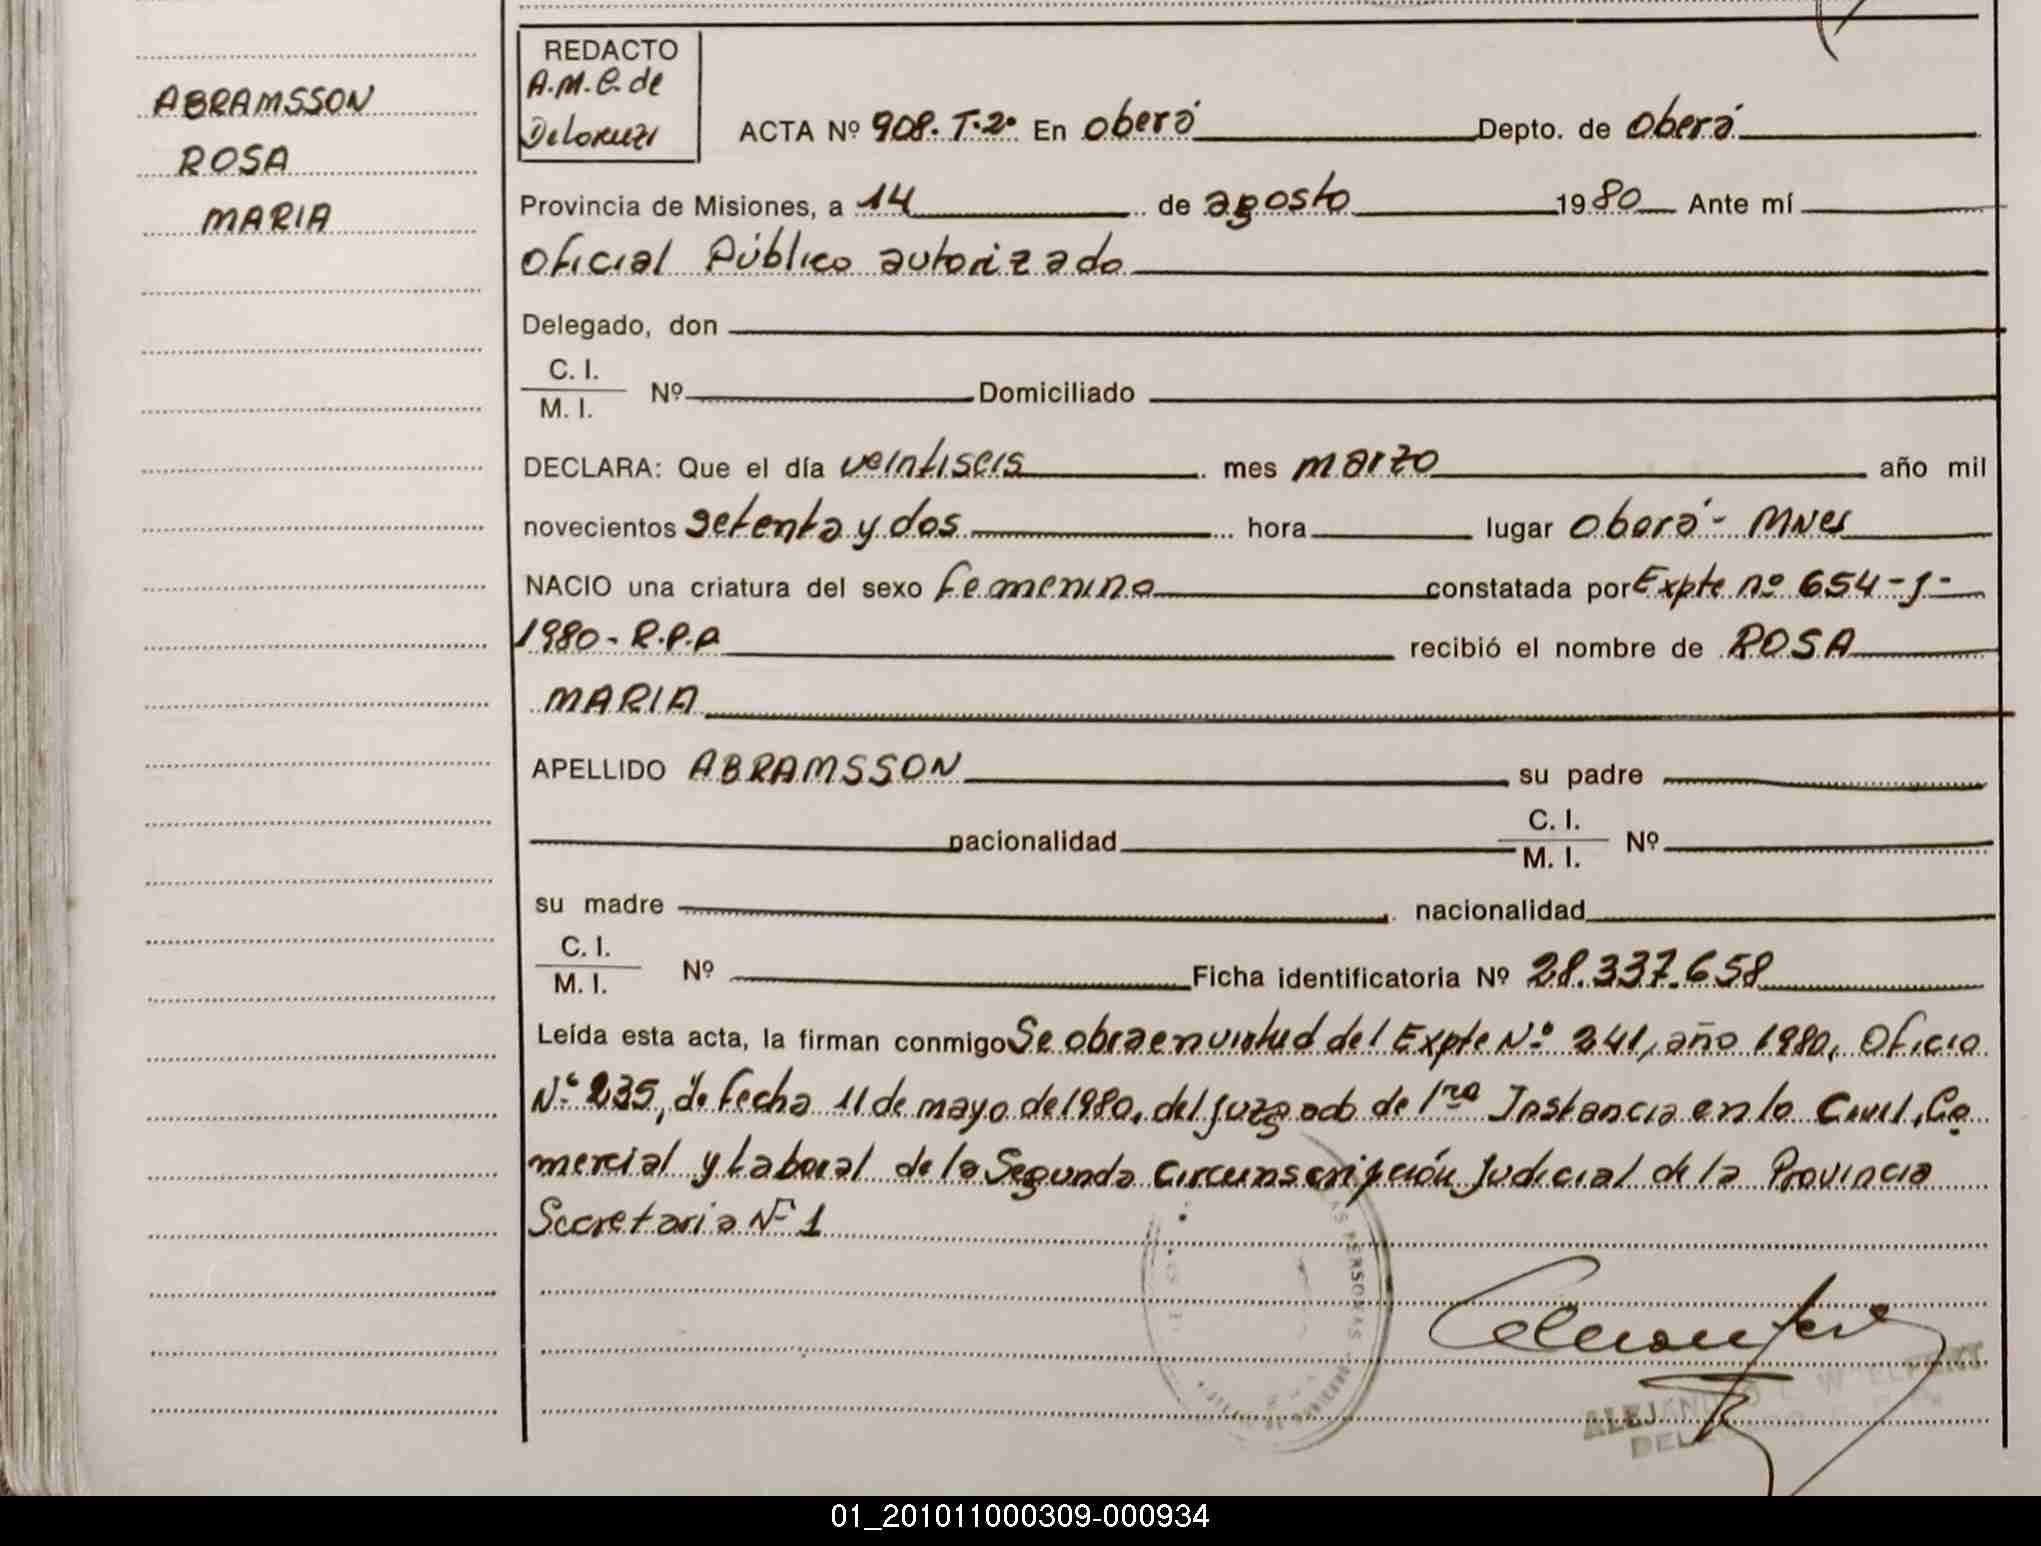 ABRAMSSON
ROSA
MARIA
REDACTO
A.M.C. de
ACTA Nº 908. T.2º En Oberá Depto. de Oberá
Provincia de Misiones, a 14 de agosto 1980 Ante mí
Oficial Público autorizado
Delegado, don
C. I.
M. I. Nº Domiciliado
DECLARA: Que el día veintiseis mes marzo año mil
novecientos setenta y dos hora lugar Oberá - Mnes
NACIO una criatura del sexo femenino constatada por Expte nº 654-J-
1980- R.P.P recibió el nombre de ROSA
MARIA
APELLIDO ABRAMSSON su padre
nacionalidad C. I.
M. I. Nº
su madre nacionalidad
C. I.
M. I. Nº Ficha identificatoria Nº 28.337.658
Leída esta acta, la firman conmigo Se obra en virtud del Expte Nº 241, año 1980, Oficio
Nº 235, de fecha 11 de mayo de 1980, del juzgado de 1ra Instancia en lo Civil, Co
mercial y Laboral de la Segunda Circunscripción Judicial de la Provincia
Secretaria Nº 1
PERSONAS
01_201011000309-000934